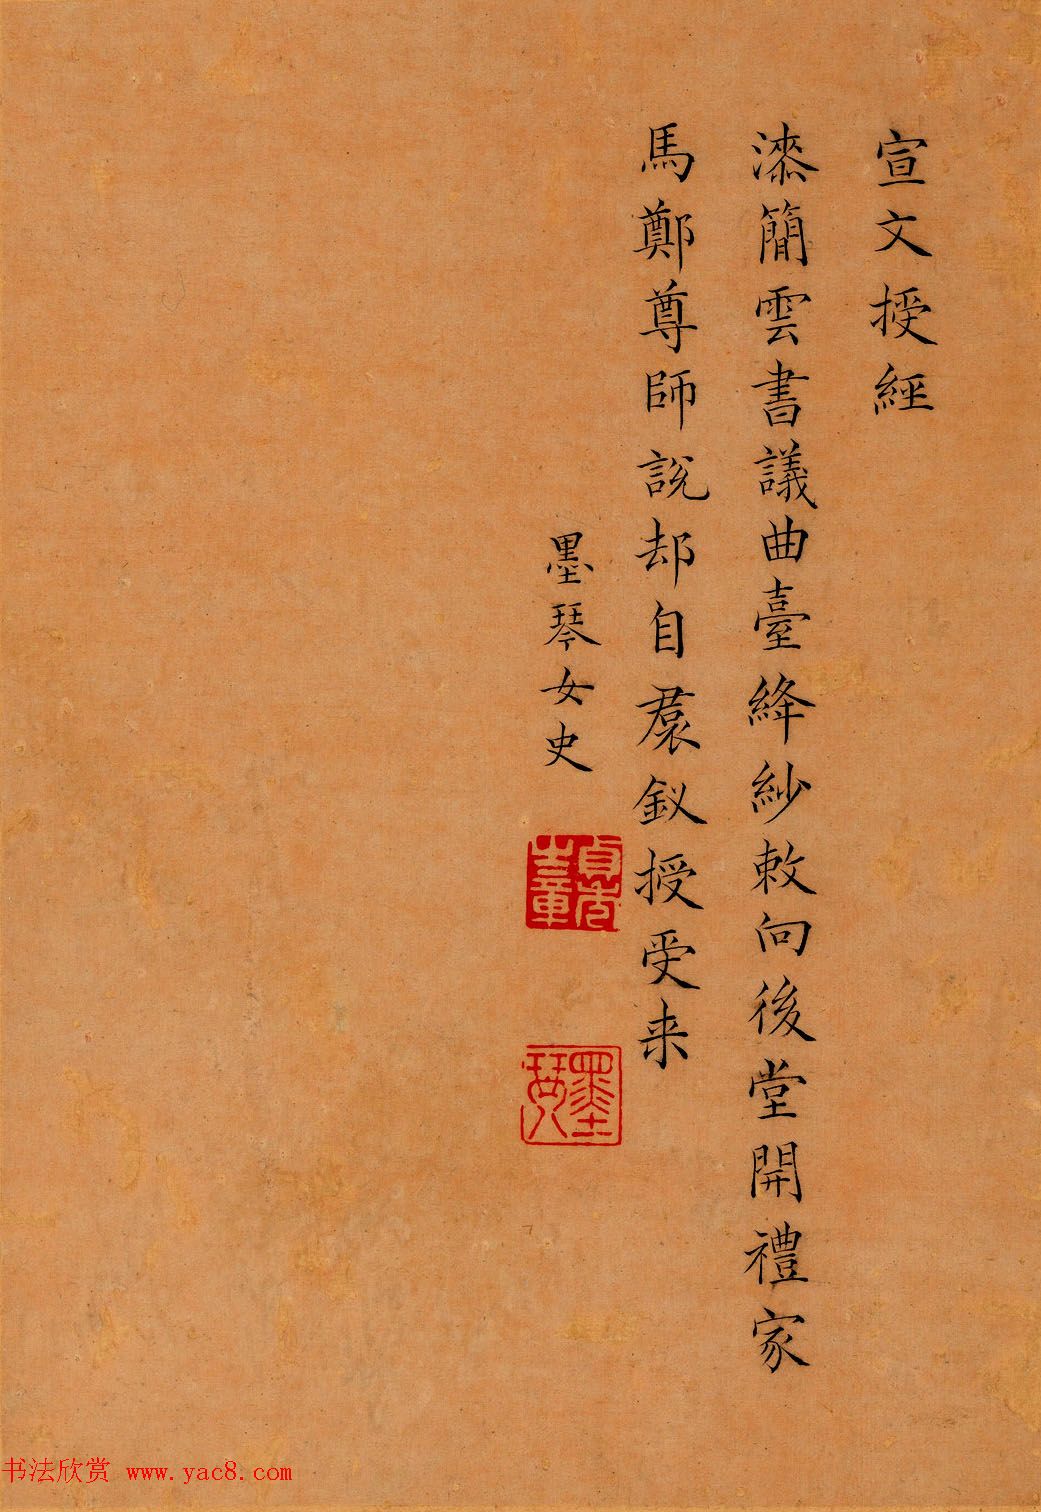 宣文授經
漆簡雲書議曲臺絳紗敕向後堂開禮家
馬鄭尊師說却自裠釵授受来
墨琴女史
貞秀
之章
墨琴
书法欣赏 www.yac8.com